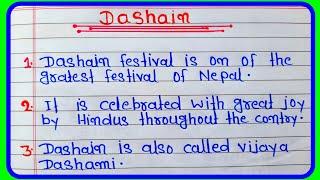 Dashain
1. Dashain festival is on of the
gratest festival of Nepal.
2. It is celebrated with great joy
by Hindus throughout the contry.
3. Dashain is also called vijaya
Dashami.